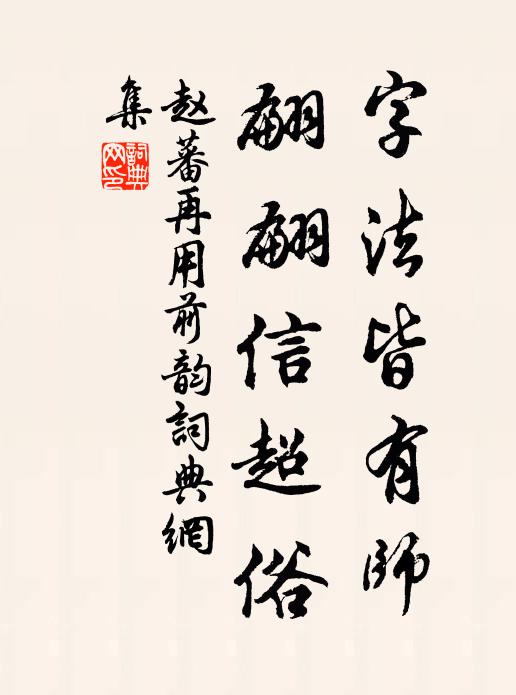 字法皆有師
翩翩信超俗
赵蕃再用前韵詞典網
集
詞典網印